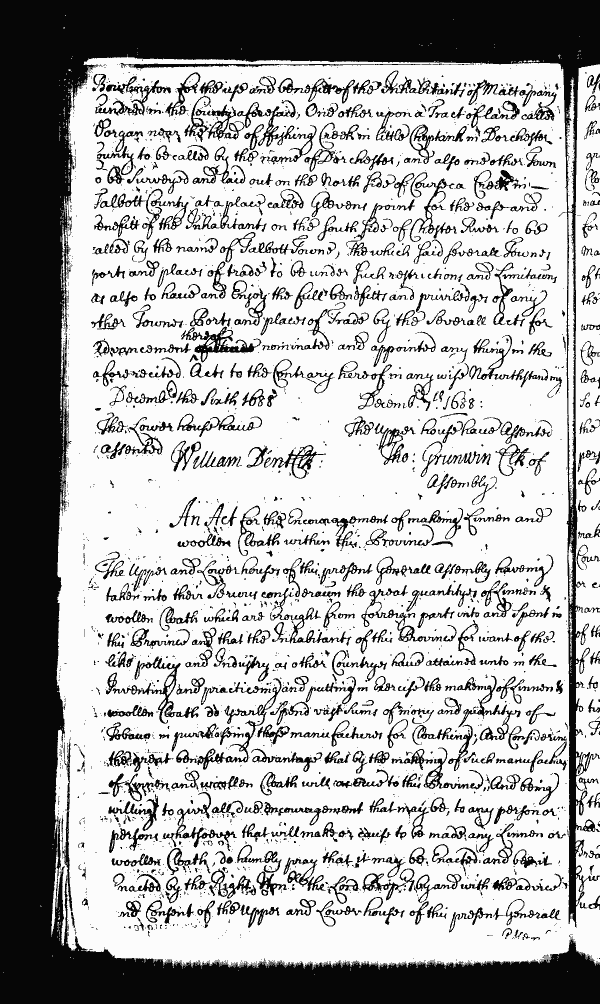 Bowlington for the use and benefitt of the Inhabitants of Mattapany
hundred in the County aforesaid, One other upon a Tract of land called
Yorgan near the head of ffishing Creek in little Choptank in Dorchester
County to be called by the name of Dorchester, and also one other Town
to be Surveyed and laid out on the North side of Coursca Creek in
Talbott County at a place called Glevens point for the ease and
benefitt of the Inhabitants on the South side of Chester River to be
called by the name of Talbott Towne, the which said severall Townes
ports and places of trade to be under such restrictions and Limitacons
as also to have and Enjoy the full benefitts and priviledges of any
other Townes Ports and places of Trade by the Severall Acts for
thereof
Advancement nominated and appointed any thing in the
aforerecited Acts to the Contrary hereof in any wise Notwithstanding
Decemb.r the Sixth 1688 Decemb.r 7.th 1688:
The Lower house have The Upper house have Assented
Assented William Dent Clk. Tho: Grunwin Clk of
Assembly.
An Act for the Encouragement of making Linnen and
woollen Cloath within this Province
The Upper and Lower houses of this present Generall Assembly haveing
taken into their Serious consideracon the great quantityes of Linnen &
woollen Cloath which are brought from forreign parts into and Spent in
this Province and that the Inhabitants of this Province for want of the
like pollicy and Industry as other Countryes have attained unto in the
Inventing and practiceing and putting in Exercise the makeing of Linnen &
woollen Cloath do yearly Spend vast Sums of mony and quantityes of
Tobacco in purchasing those manufactures for Cloathing, And Considering
the great benefitt and advantage that by the makeing of Such manufactures
of Linnen and woollen Cloath will accrue to this Province, And being
willing to give all due encouragement that may be, to any person or
persons whatsoever that will make or cause to be made any Linnen or
woollen Cloath, do humbly pray that it may be Enacted and be it
Enacted by the Right Hon.ble the Lord Prop.ry by and with the advice
and Consent of the Upper and Lower houses of this present Generall